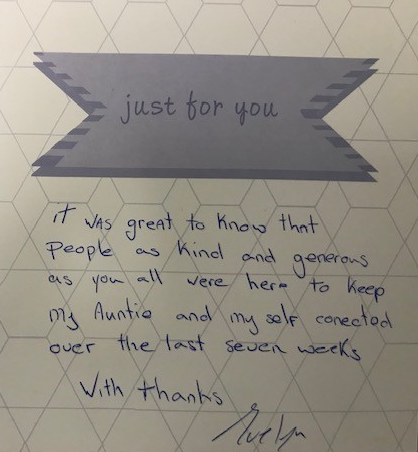 just for you
it was great to know that
People as kind and generous
as you all were here to keep
my Auntie and my self conected
over the last seven weeks
With thanks
Evelyn